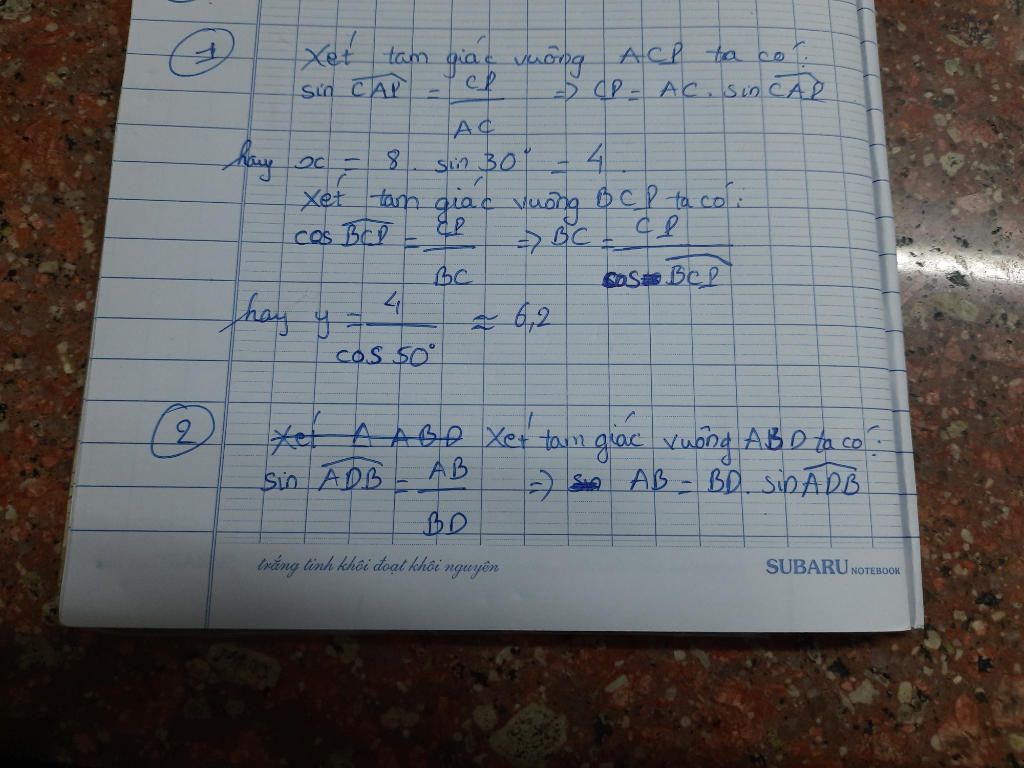 1 Xét tam giác vuông ACP ta có:
sin CAP = CP / AC => CP = AC. sin CAP
hay x = 8. sin 30° = 4.
Xét tam giác vuông BCP ta có:
cos BCP = CP / BC => BC = CP / cos BCP
hay y = 4 / cos 50° ≈ 6,2
2 Xét A ABD Xét tam giác vuông ABD ta có:
sin ADB = AB / BD => sin AB = BD. sin ADB
trắng tinh khôi đoạt khôi nguyên
SUBARU NOTEBOOK